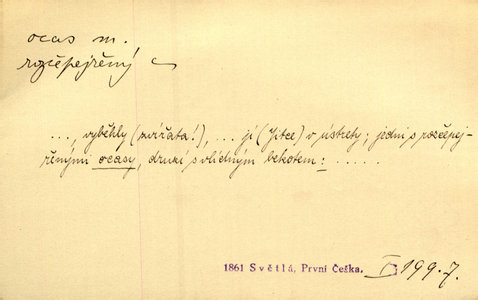 ocas m.
rozčepejřený
..., vyběhly (zvířata!), ... jí (Jitce) v ústrety; jedni s rozčepej-
řenými ocasy, druzí s vlídným bekotem: .....
1861 Světlá, První Češka. I 199.7.